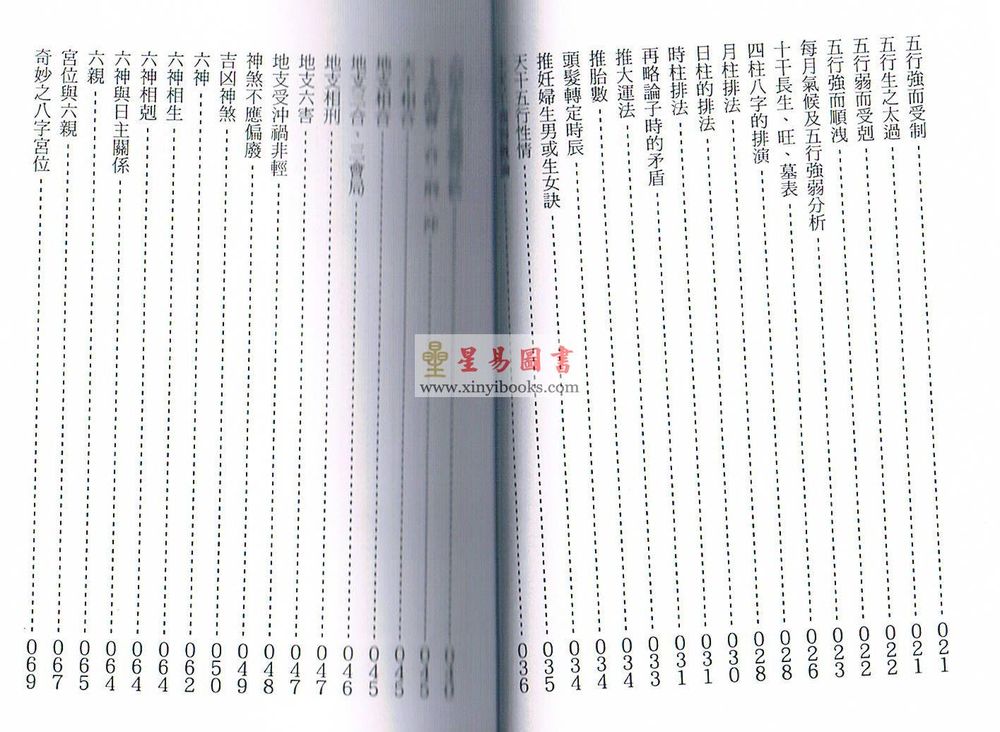 五行強而受制 021
五行生之太過 021
五行弱而受剋 022
五行強而順洩 022
每月氣候及五行強弱分析 023
十干長生、旺、墓表 026
四柱八字的排演 028
月柱排法 028
日柱的排法 030
時柱排法 031
再略論子時的矛盾 031
推大運法 033
推胎數 034
頭髮轉定時辰 034
推妊婦生男或生女訣 034
天干五行性情 035
036
045
045
合、三會局 046
地支相刑 047
地支六害 047
地支受沖禍非輕 048
神煞不應偏廢 049
吉凶神煞 050
六神 062
六神相生 064
六神相剋 064
六神與日主關係 064
六親 065
宮位與六親 067
奇妙之八字宮位 069
星易圖書
www.xinyibooks.com